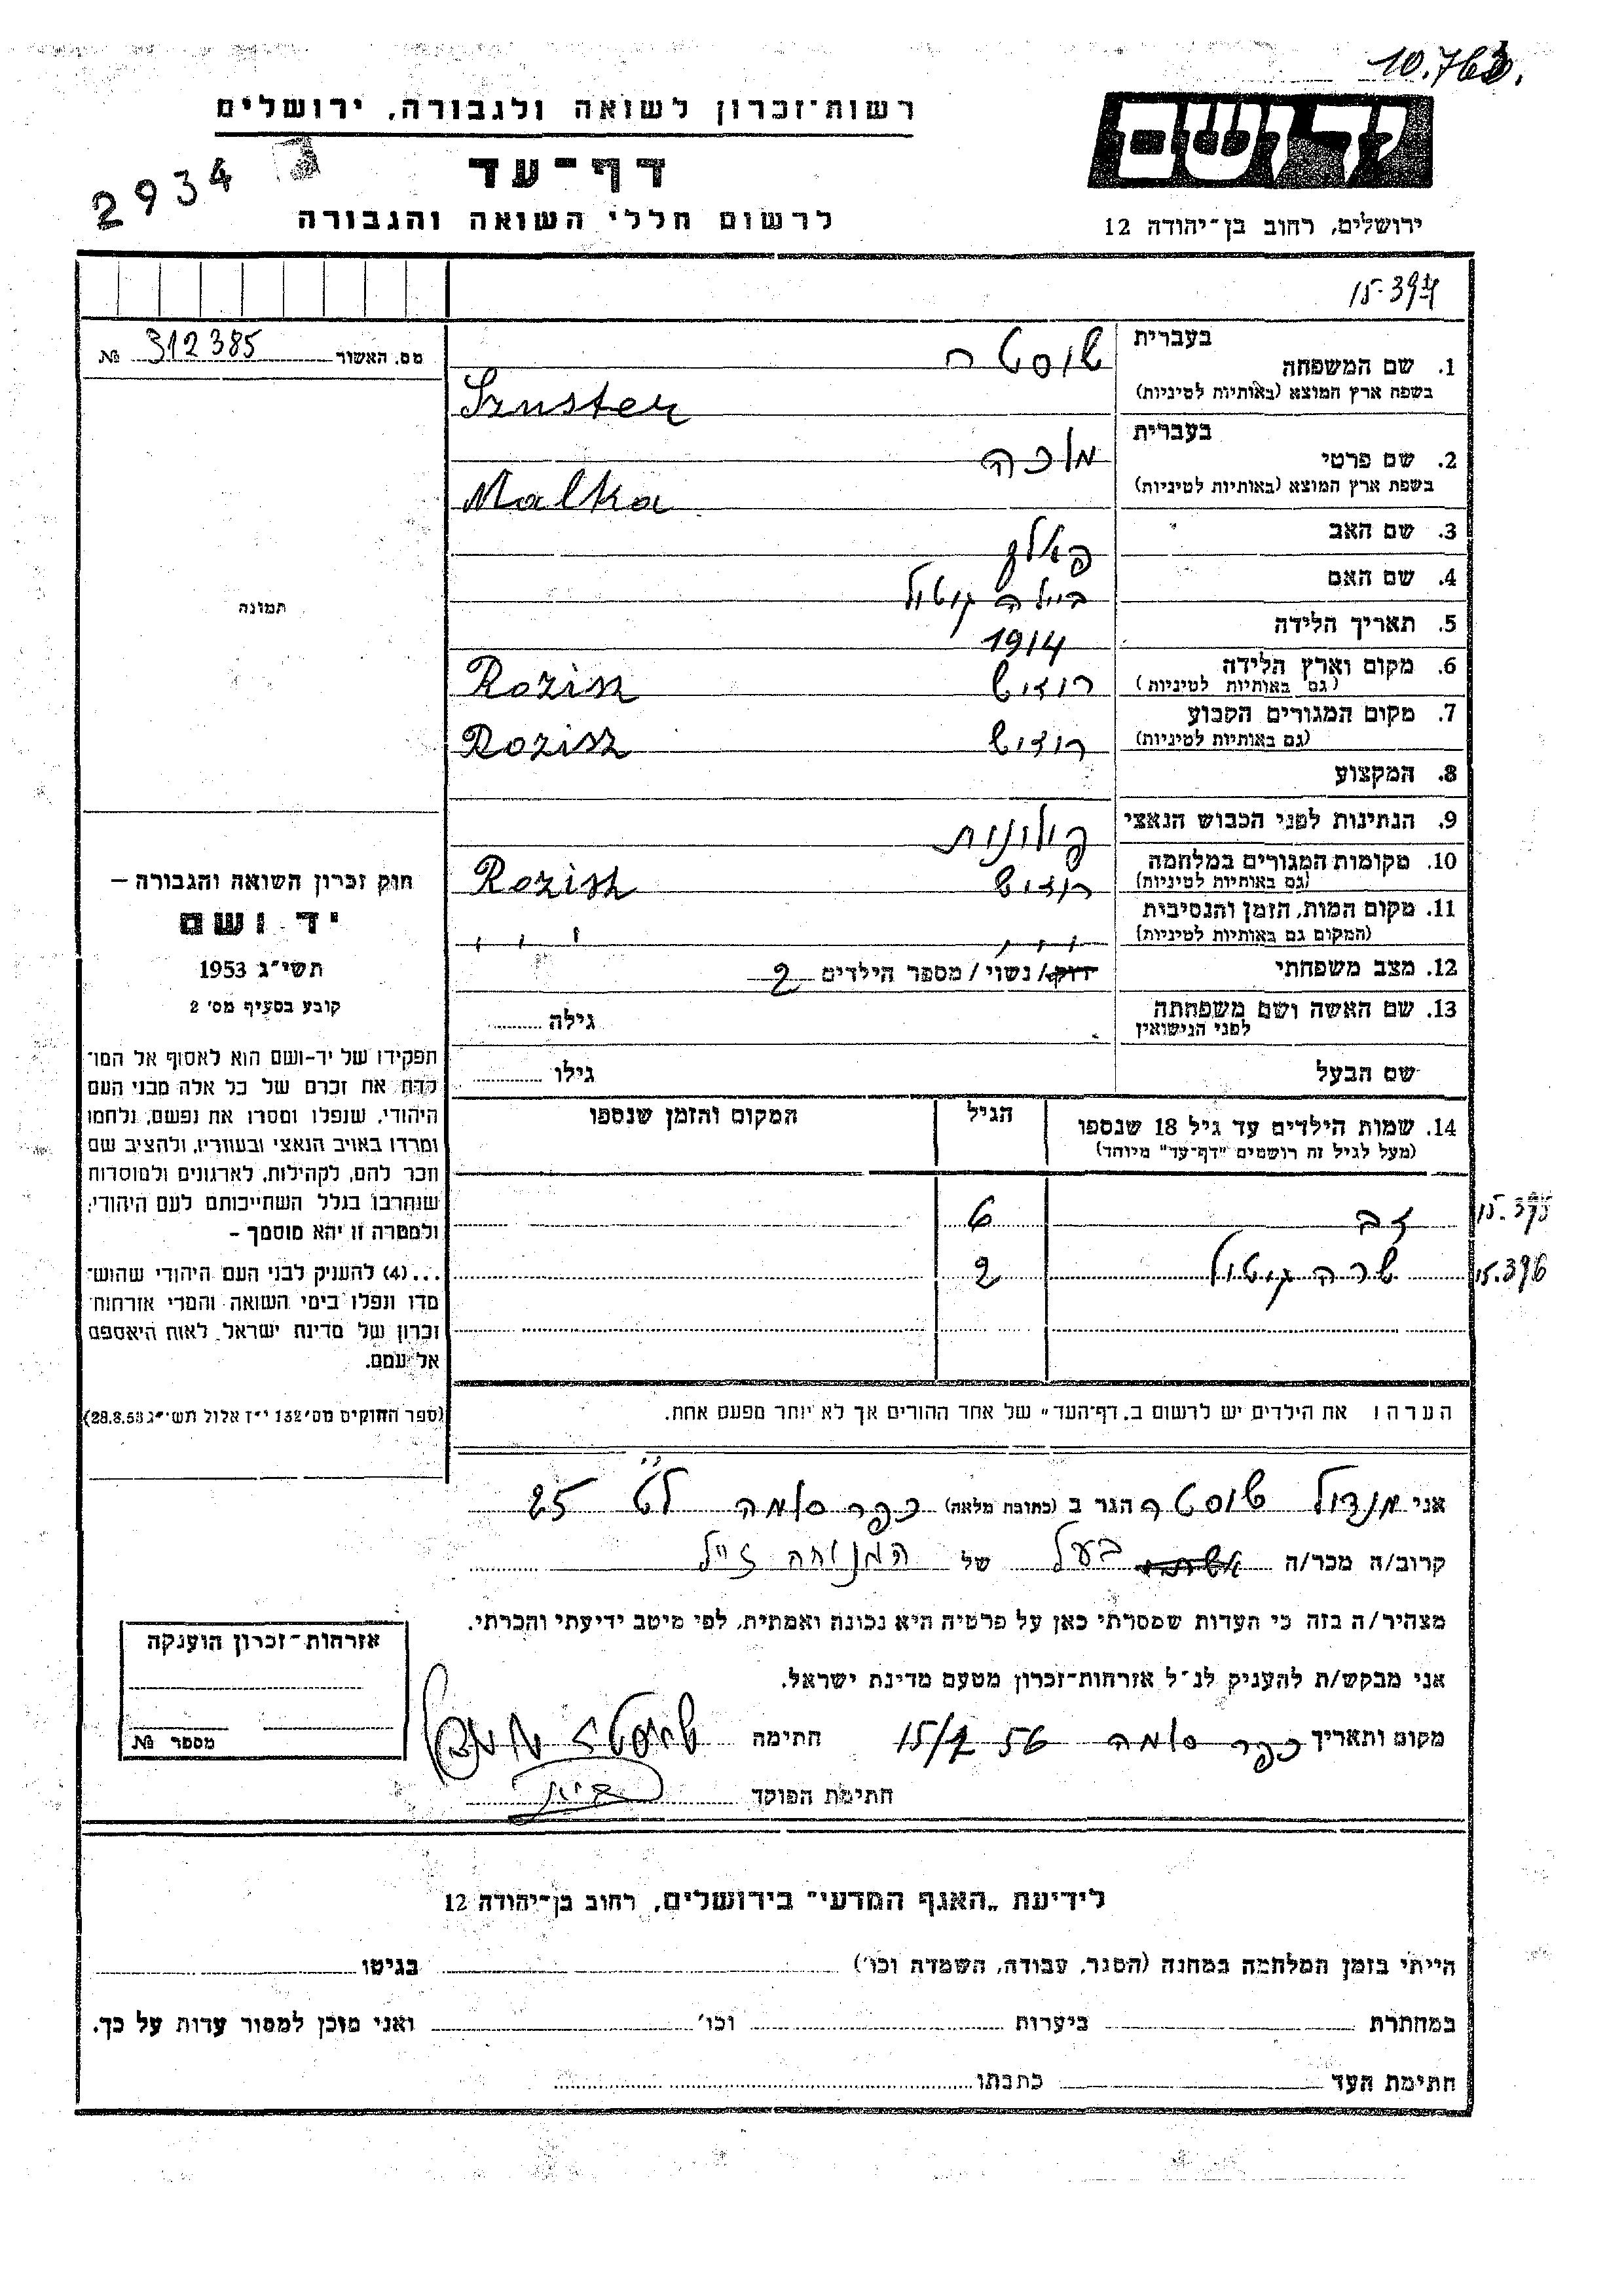 10.763.
רשות־זכרון לשואה ולגבורה, ירושלים
יד ושם
דף־עד
2934
לרשום חללי השואה והגבורה
ירושלים, רחוב בן־יהודה 12
15.394
מס. האשור 312385 №
בעברית
1. שם המשפחה
שוסטר
בשפת ארץ המוצא (באותיות לטיניות)
Szuster
בעברית
2. שם פרטי
מלכה
בשפת ארץ המוצא (באותיות לטיניות)
Malka
3. שם האב
4. שם האם
ביילה גיטול
5. תאריך הלידה
1914
6. מקום וארץ הלידה
(גם באותיות לטיניות)
רוזיש Rozisz
7. מקום המגורים הקבוע
(גם באותיות לטיניות)
רוזיש Rozisz
8. המקצוע
9. הנתינות לפני הכבוש הנאצי
פולונות
10. מקומות המגורים במלחמה
(גם באותיות לטיניות)
רוזיש Rozisz
11. מקום המות, הזמן והנסיבות
(המקום גם באותיות לטיניות)
12. מצב משפחתי
רוק/ נשוי/ מספר הילדים 2
13. שם האשה ושם משפחתה
לפני הנישואין
גילה
שם הבעל
גילו
תמונה
חוק זכרון השואה והגבורה –
יד ושם
תשי״ג 1953
קובע בסעיף מס׳ 2
תפקידו של יד-ושם הוא לאסוף אל המו־
לדת את זכרם של כל אלה מבני העם
היהודי, שנפלו ומסרו את נפשם, נלחמו
ומרדו באויב הנאצי ובעוזריו, ולהציב שם
וזכר להם, לקהילות, לארגונים ולמוסדות
שנחרבו בגלל השתייכותם לעם היהודי;
ולמטרה זו יהא מוסמך –
...(4) להעניק לבני העם היהודי שהוש־
מדו ונפלו בימי השואה והמרי אזרחות
זכרון של מדינת ישראל, לאות היאספם
אל עמם.
(ספר החוקים מס׳ 132 י״ז אלול תשי״ג 28.8.53)
14. שמות הילדים עד גיל 18 שנספו
(מעל לגיל זה רושמים "דף-עד" מיוחד)
הגיל
המקום והזמן שנספו
זב 6
15.395
שרה גיטול 2
15.396
הערה: את הילדים יש לרשום ב„דף־העד" של אחד ההורים אך לא יותר מפעם אחת.
אני מנדול שוסטר הגר ב (כתובת מלאה) כפר סלמה 25
קרוב/ה מכר/ה בעל של המנוחה ז״ל
מצהיר/ה בזה כי העדות שמסרתי כאן על פרטיה היא נכונה ואמתית, לפי מיטב ידיעתי והכרתי.
אני מבקש/ת להעניק לנ״ל אזרחות־זכרון מטעם מדינת ישראל.
מקום ותאריך כפר סלמה 15/2 56 חתימה
חתימת הפוקד
אזרחות־זכרון הוענקה
מספר №
לידיעת „האגף המדעי" בירושלים, רחוב בן־יהודה 12
הייתי בזמן המלחמה במחנה (הסגר, עבודה, השמדה וכו׳) בגיטו
במחתרת ביערות וכו׳ ואני מוכן למסור עדות על כך.
חתימת העד כתבתו